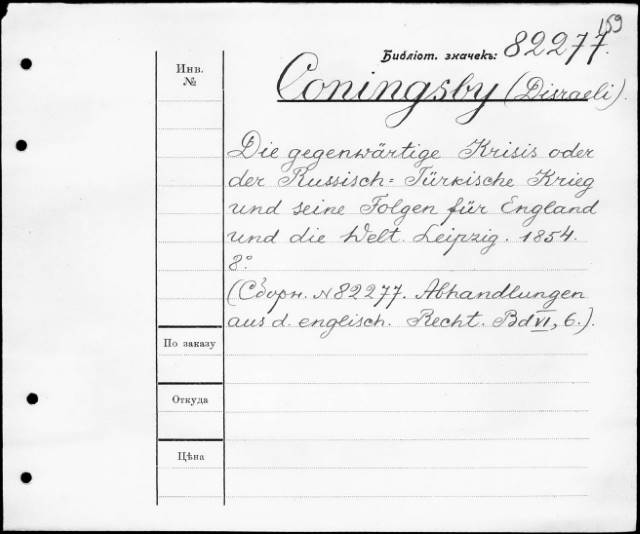 159
Библіот. значекъ: 82277.
Инв.
№
Coningsby (Disraeli).
Die gegenwärtige Krisis oder
der Russisch=Türkische Krieg
und seine Folgen für England
und die Welt. Leipzig. 1854.
8°
(Сборн. № 82277. Abhandlungen
aus d. englisch. Recht. Bd VI, 6.).
По заказу
Откуда
Цѣна